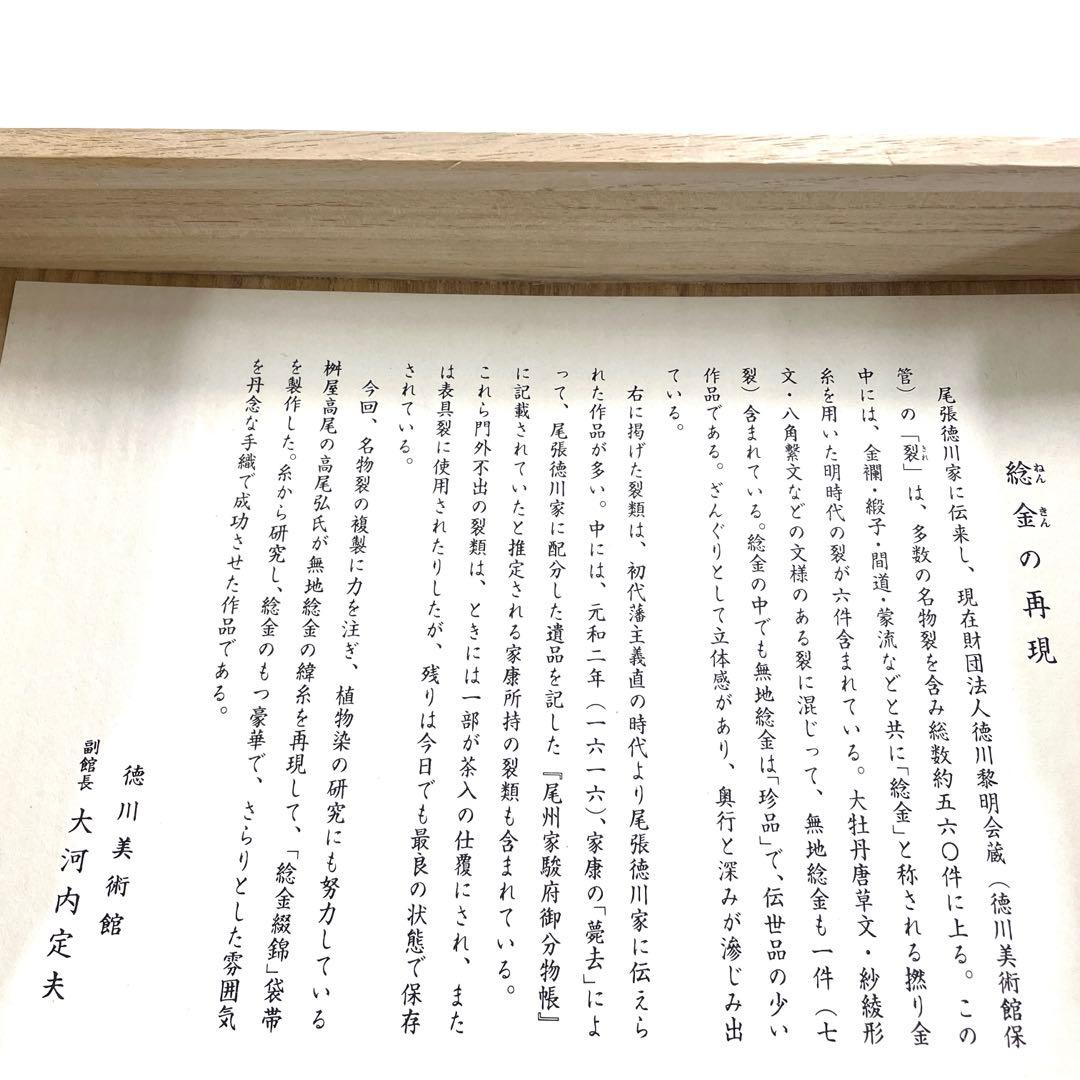 捻金の再現
ねんきん
尾張徳川家に伝来し、現在財団法人徳川黎明会蔵(徳川美術館保
管)の「裂」は、多数の名物裂を含み総数約五六〇件に上る。この
きれ
中には、金襴・緞子・間道・蒙流などと共に「捻金」と称される撚り金
糸を用いた明時代の裂が六件含まれている。大牡丹唐草文・紗綾形
文・八角繋文などの文様のある裂に混じって、無地捻金も一件(七
裂)含まれている。捻金の中でも無地捻金は「珍品」で、伝世品の少い
作品である。ざんぐりとして立体感があり、奥行と深みが滲じみ出
ている。
右に掲げた裂類は、初代藩主義直の時代より尾張徳川家に伝えら
れた作品が多い。中には、元和二年(一六一六)、家康の「薨去」によ
って、尾張徳川家に配分した遺品を記した『尾州家駿府御分物帳』
に記載されていたと推定される家康所持の裂類も含まれている。
これら門外不出の裂類は、ときには一部が茶入の仕覆にされ、また
は表具裂に使用されたりしたが、残りは今日でも最良の状態で保存
されている。
今回、名物裂の複製に力を注ぎ、植物染の研究にも努力している
桝屋高尾の高尾弘氏が無地捻金の緯糸を再現して、「捻金綴錦」袋帯
を製作した。糸から研究し、捻金のもつ豪華で、さらりとした雰囲気
を丹念な手織で成功させた作品である。
徳川美術館
副館長 大河内定夫